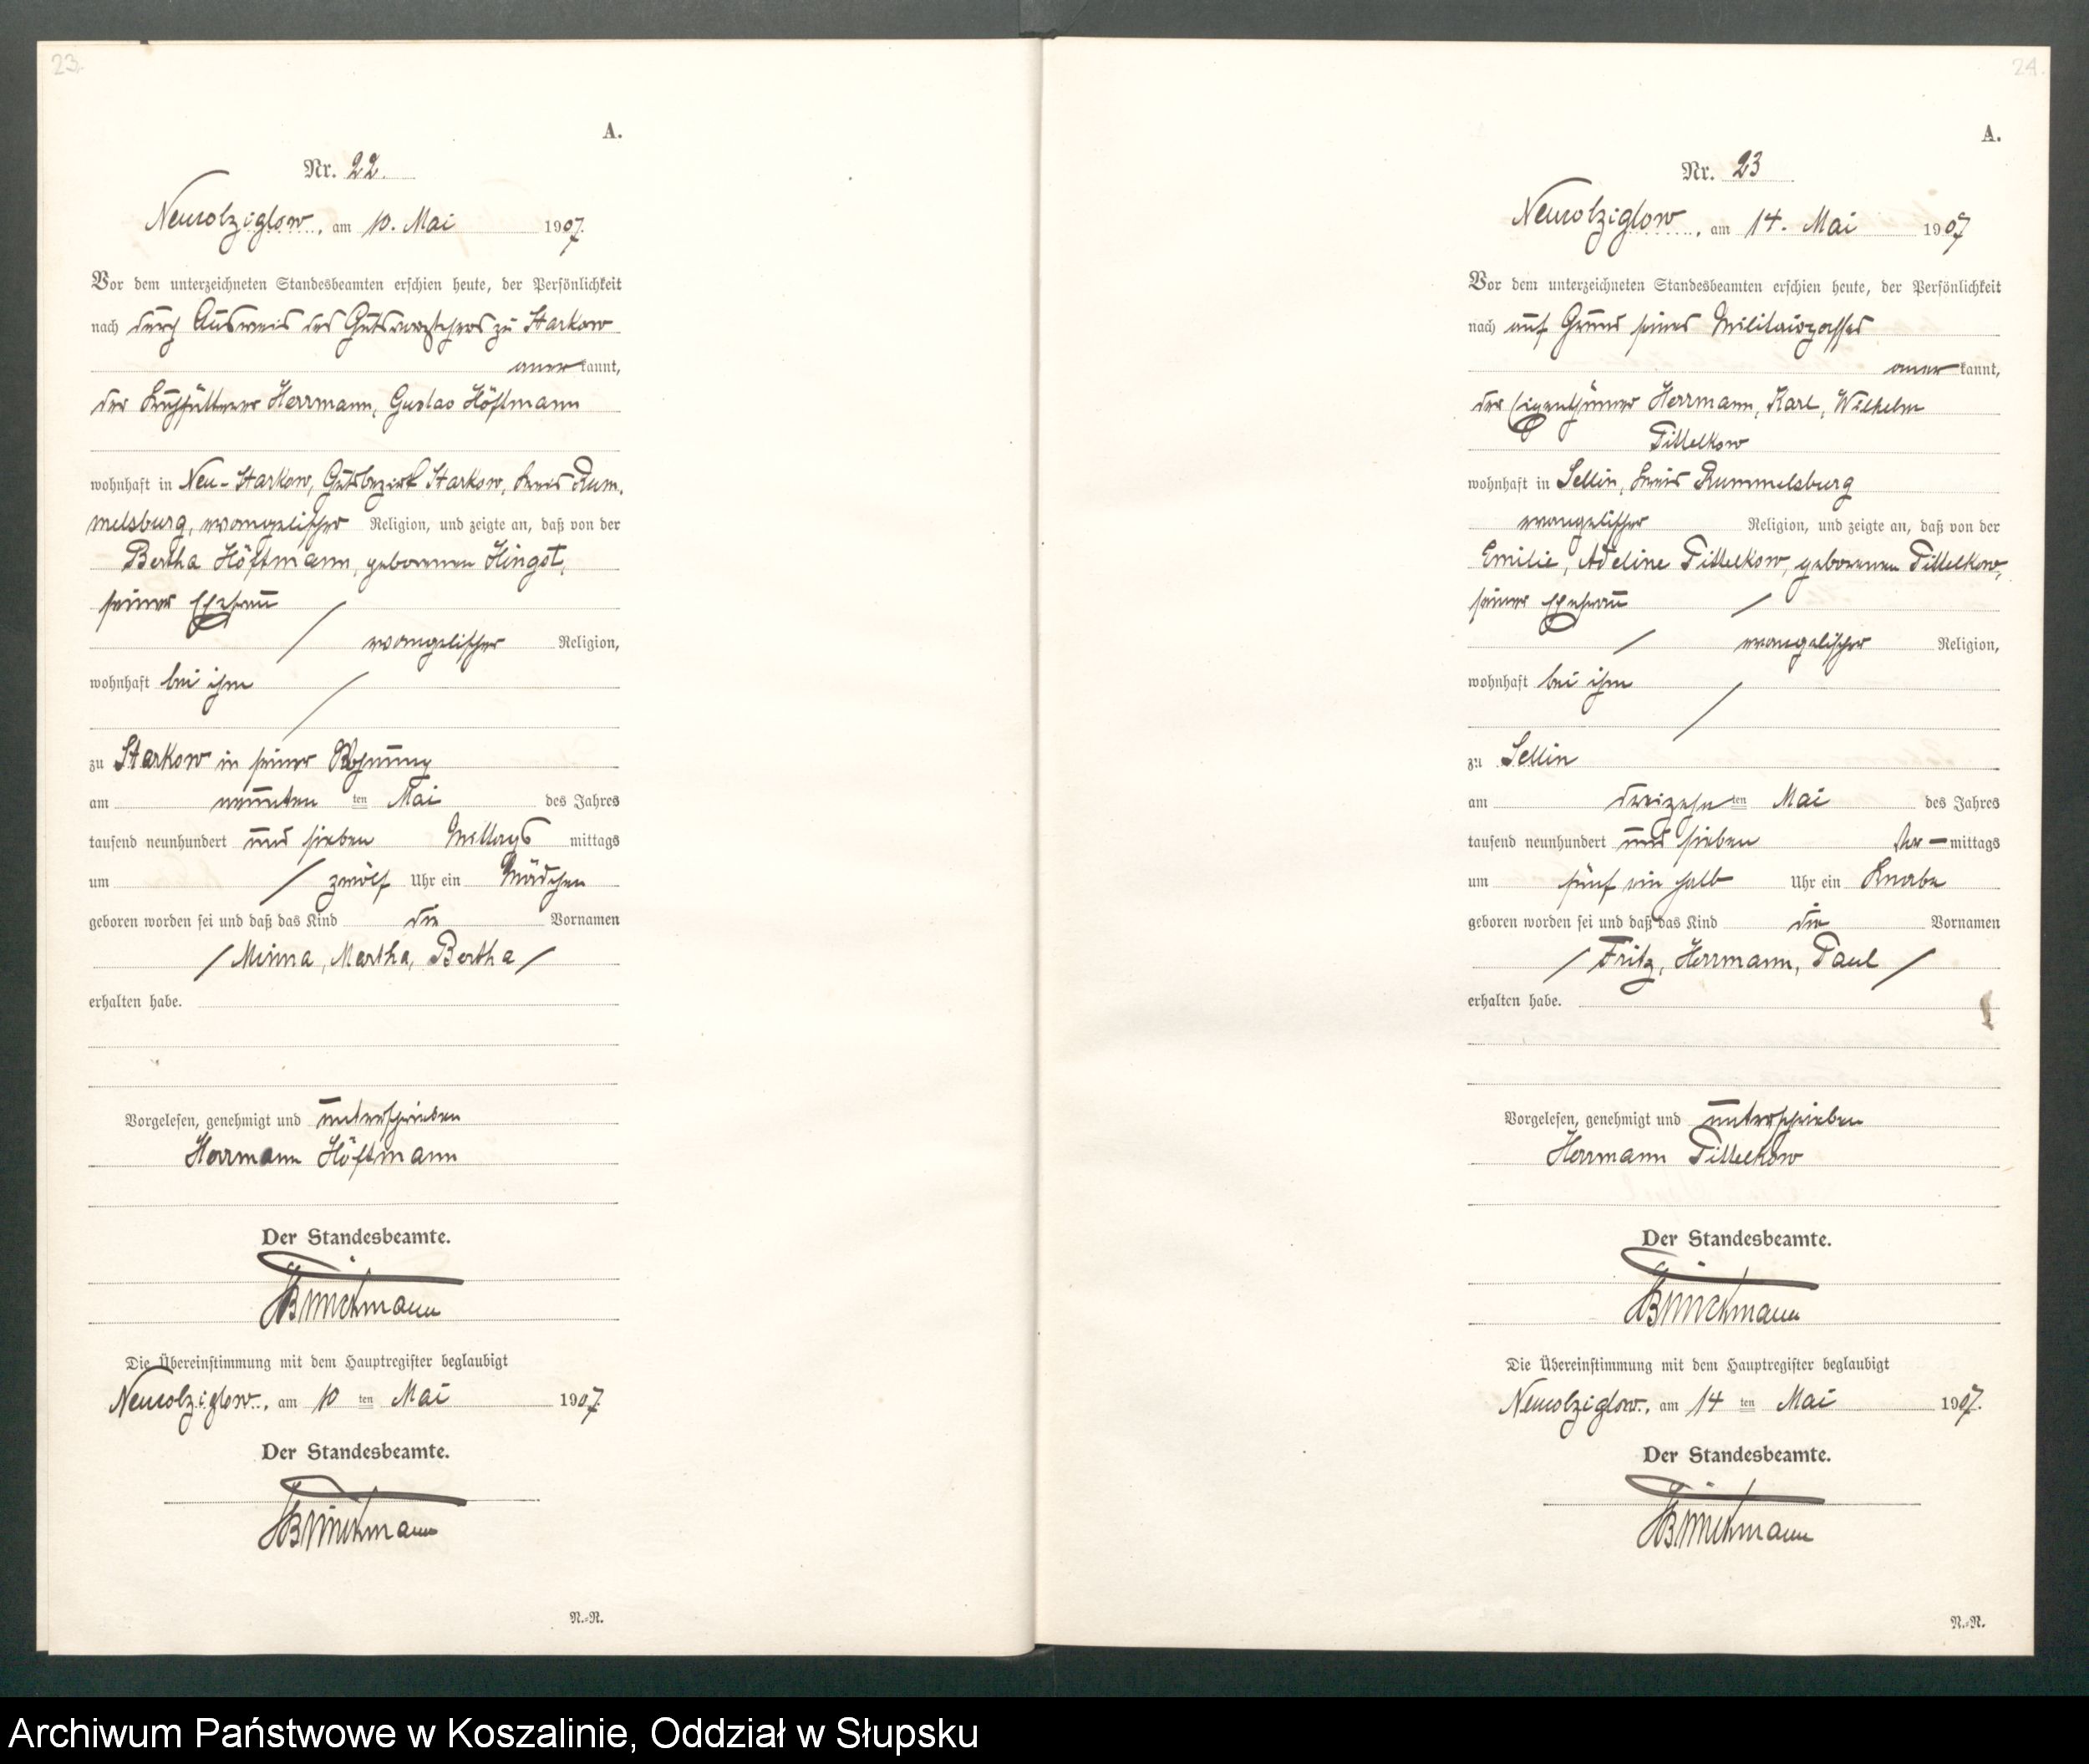 23.
A.
Nr. 22.
Neukolziglow, am 10. Mai 1907.
Vor dem unterzeichneten Standesbeamten erschien heute, der Persönlichkeit
nach durch Ausweis des Gutsvorstehers zu Starkow
anerkannt,
der Kuhfütterer Herrmann, Gustav Höftmann
wohnhaft in Neu-Starkow, Gutsbezirk Starkow, Kreis Rum,
melsburg, evangelischer Religion, und zeigte an, daß von der
Bertha Höftmann, geborenen Hingst,
seiner Ehefrau
evangelischer Religion,
wohnhaft bei ihm
zu Starkow in seiner Wohnung
am neunten ten Mai des Jahres
tausend neunhundert und sieben Mittags mittags
um / zwölf Uhr ein Mädchen
geboren worden sei und daß das Kind die Vornamen
/ Minna, Martha, Bertha /
erhalten habe.
Vorgelesen, genehmigt und unterschrieben
Herrmann Höftmann
Der Standesbeamte.
Die Übereinstimmung mit dem Hauptregister beglaubigt
Neukolziglow, am 10 ten Mai 1907.
Der Standesbeamte.
N.-N.
24.
A.
Nr. 23
Neukolziglow, am 14. Mai 1907
Vor dem unterzeichneten Standesbeamten erschien heute, der Persönlichkeit
nach auf Grund seines Militairpasses
anerkannt,
der Eigenthümer Herrmann, Karl, Wilhelm
Tittelkow
wohnhaft in Sellin, Kreis Rummelsburg
evangelischer Religion, und zeigte an, daß von der
Emilie, Adeline Tittelkow, geborenen Tittelkow,
seiner Ehefrau /
/ evangelischer Religion,
wohnhaft bei ihm
zu Sellin
am dreizehnten Mai des Jahres
tausend neunhundert und sieben Vor-mittags
um fünf ein halb Uhr ein Knabe
geboren worden sei und daß das Kind die Vornamen
/ Fritz, Herrmann, Paul /
erhalten habe.
Vorgelesen, genehmigt und unterschrieben
Herrmann Tittelkow
Der Standesbeamte.
Die Übereinstimmung mit dem Hauptregister beglaubigt
Neukolziglow, am 14 ten Mai 1907.
Der Standesbeamte.
N.-N.
Archiwum Państwowe w Koszalinie, Oddział w Słupsku